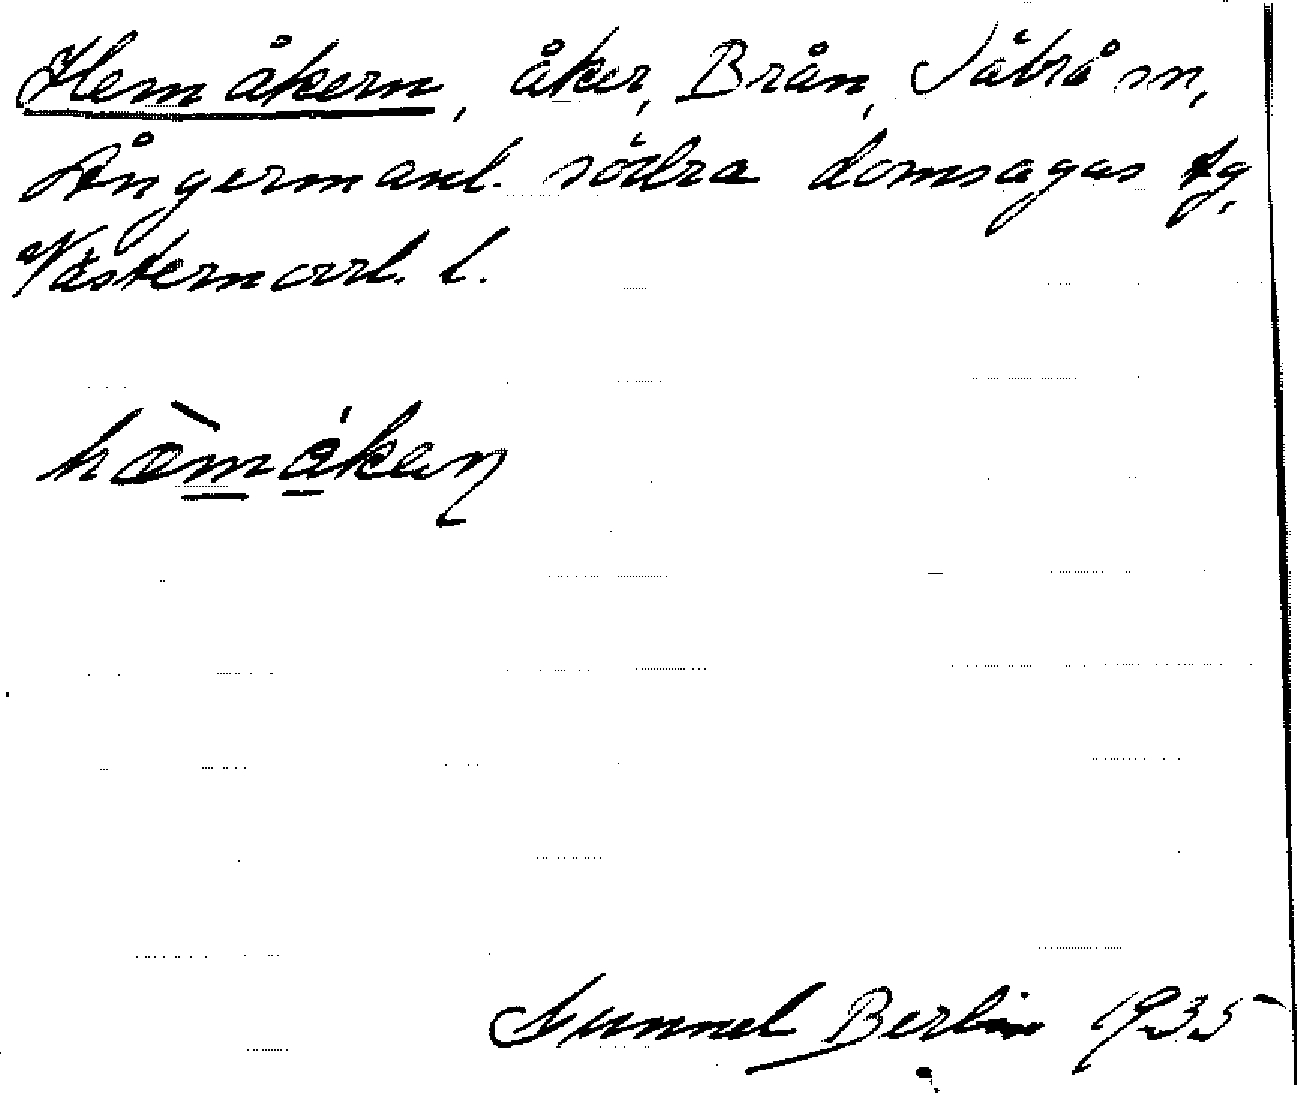 Hemåkern, åker, Brån, Såbrå sn,
Ångermanl. södra domsagas tg,
Västernorrl. l.
hæ̀mákaɳ
Gunnel Berlin 1935